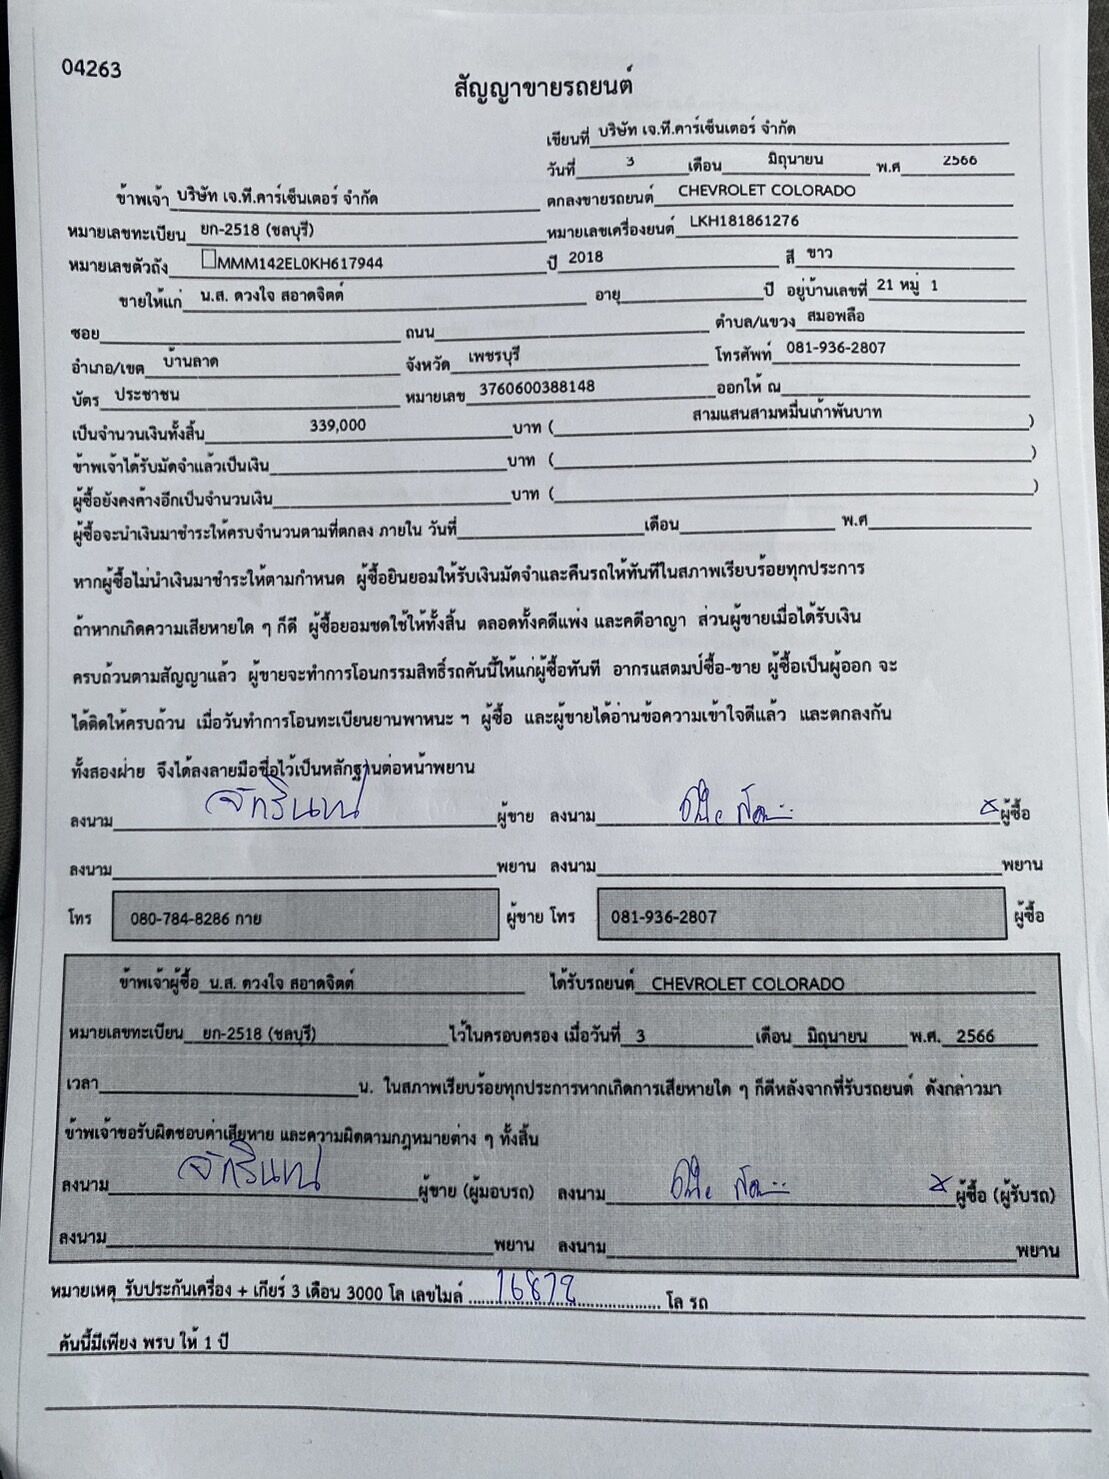 04263
สัญญาขายรถยนต์
เขียนที่ บริษัท เจ.ที.คาร์เซ็นเตอร์ จำกัด
วันที่ 3 เดือน มิถุนายน พ.ศ 2566
ข้าพเจ้า บริษัท เจ.ที.คาร์เซ็นเตอร์ จำกัด ตกลงขายรถยนต์ CHEVROLET COLORADO
หมายเลขทะเบียน ยก-2518 (ชลบุรี) หมายเลขเครื่องยนต์ LKH181861276
หมายเลขตัวถัง MMM142EL0KH617944 ปี 2018 สี ขาว
ขายให้แก่ น.ส. ดวงใจ สอาดจิตต์ อายุ ปี อยู่บ้านเลขที่ 21 หมู่ 1
ซอย ถนน ตำบล/แขวง สมอพลือ
อำเภอ/เขต บ้านลาด จังหวัด เพชรบุรี โทรศัพท์ 081-936-2807
บัตร ประชาชน หมายเลข 3760600388148 ออกให้ ณ
เป็นจำนวนเงินทั้งสิ้น 339,000 บาท ( สามแสนสามหมื่นเก้าพันบาท )
ข้าพเจ้าได้รับมัดจำแล้วเป็นเงิน บาท ( )
ผู้ซื้อยังคงค้างอีกเป็นจำนวนเงิน บาท ( )
ผู้ซื้อจะนำเงินมาชำระให้ครบจำนวนตามที่ตกลง ภายใน วันที่ เดือน พ.ศ
หากผู้ซื้อไม่นำเงินมาชำระให้ตามกำหนด ผู้ซื้อยินยอมให้รับเงินมัดจำและคืนรถให้ทันทีในสภาพเรียบร้อยทุกประการ
ถ้าหากเกิดความเสียหายใด ๆ ก็ดี ผู้ซื้อยอมชดใช้ให้ทั้งสิ้น ตลอดทั้งคดีแพ่ง และคดีอาญา ส่วนผู้ขายเมื่อได้รับเงิน
ครบถ้วนตามสัญญาแล้ว ผู้ขายจะทำการโอนกรรมสิทธิ์รถคันนี้ให้แก่ผู้ซื้อทันที อากรแสตมป์ซื้อ-ขาย ผู้ซื้อเป็นผู้ออก จะ
ได้ติดให้ครบถ้วน เมื่อวันทำการโอนทะเบียนยานพาหนะ ฯ ผู้ซื้อ และผู้ขายได้อ่านข้อความเข้าใจดีแล้ว และตกลงกัน
ทั้งสองฝ่าย จึงได้ลงลายมือชื่อไว้เป็นหลักฐานต่อหน้าพยาน
ลงนาม จักรินทน์ ผู้ขาย ลงนาม ผู้ซื้อ
ลงนาม พยาน ลงนาม พยาน
โทร 080-784-8286 กาย ผู้ขาย โทร 081-936-2807 ผู้ซื้อ
ข้าพเจ้าผู้ซื้อ น.ส. ดวงใจ สอาดจิตต์ ได้รับรถยนต์ CHEVROLET COLORADO
หมายเลขทะเบียน ยก-2518 (ชลบุรี) ไว้ในครอบครอง เมื่อวันที่ 3 เดือน มิถุนายน พ.ศ. 2566
เวลา น. ในสภาพเรียบร้อยทุกประการหากเกิดการเสียหายใด ๆ ก็ดีหลังจากที่รับรถยนต์ ดังกล่าวมา
ข้าพเจ้าขอรับผิดชอบค่าเสียหาย และความผิดตามกฎหมายต่าง ๆ ทั้งสิ้น
ลงนาม จักรินทน์ ผู้ขาย (ผู้มอบรถ) ลงนาม ผู้ซื้อ (ผู้รับรถ)
ลงนาม พยาน ลงนาม พยาน
หมายเหตุ รับประกันเครื่อง + เกียร์ 3 เดือน 3000 โล เลขไมล์ ........................................ โล รถ
คันนี้มีเพียง พรบ ให้ 1 ปี